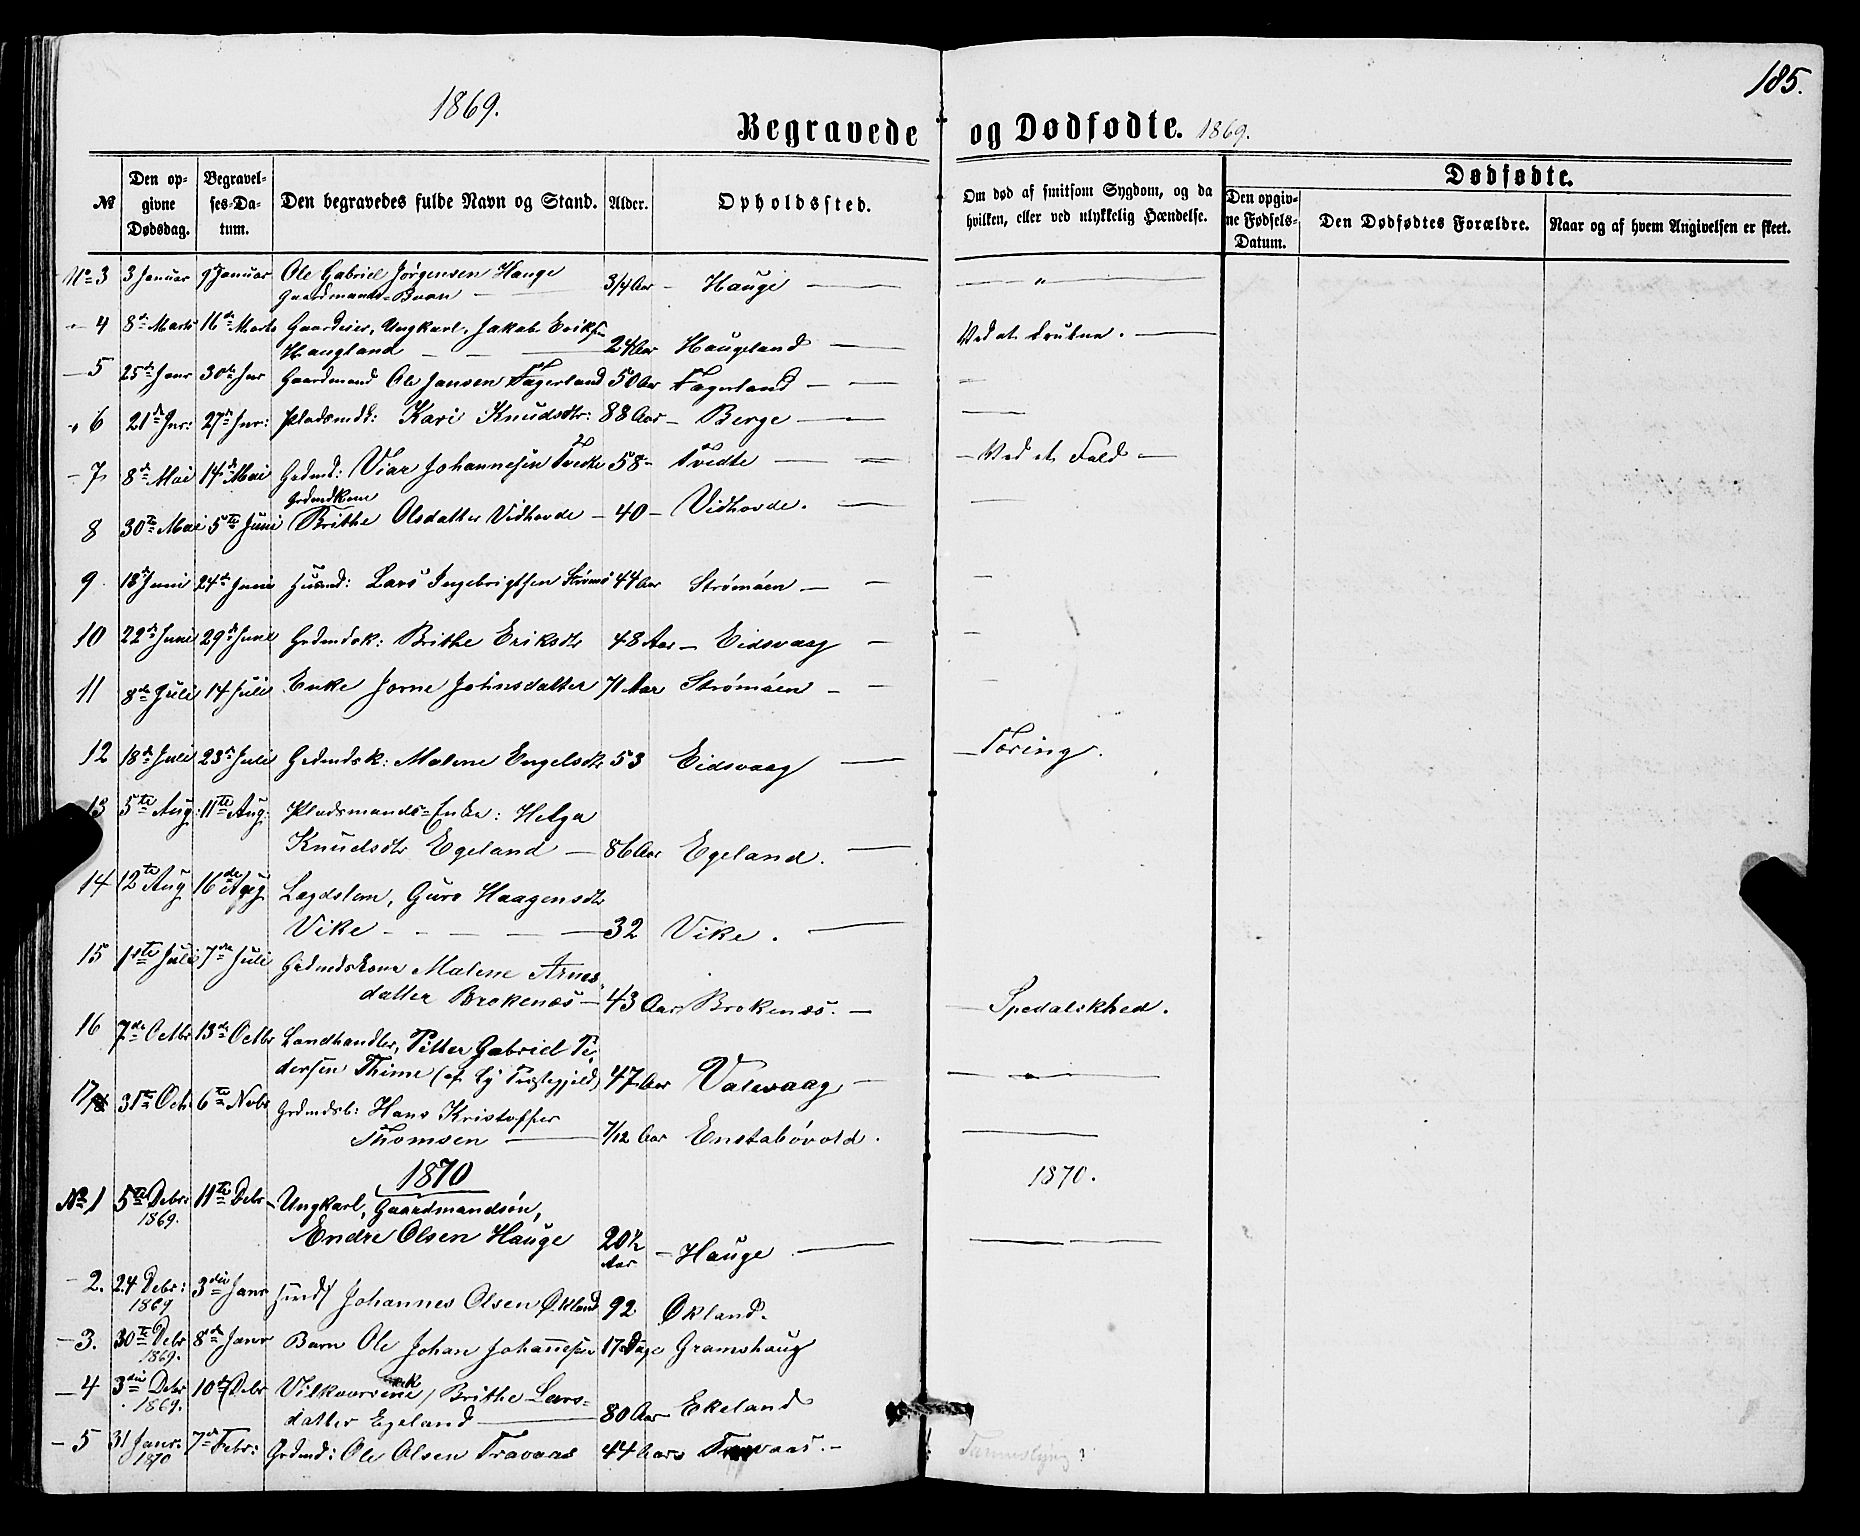 185.
1869.
Begravede og Dødfødte. 1869.
№ Den opgivne Dødsdag. Begravelses-Datum. Den begravedes fulde Navn og Stand. Alder. Opholdssted. Om død af smitsom Sygdom, og da hvilken, eller ved ulykkelig Hændelse. Dødfødte.
Den opgivne Fødsels-Datum. Den Dødfødtes Forældre. Naar og af hvem Angivelsen er skeet.
No 3 3 Januar 9 Januar Ole Gabriel Jörgensen Hauge
Gaardmands-Barn 3/4 Aar Hauge "
4 8de Marts 16de Marts Gaardeier, Ungkarl, Jakob Eriks.
Haugland 24 Aar Haugeland Ved at drukne.
5 25de Janr 30te Jnr Gaardmand Ole Jansen Fagerland 50 Aar Fagerland
6 21de Jnr: 27de Jnr: Pladsmdk: Kari Knudsdtr: 88 Aar Berge
7 8de Mai 14de Mai Grdmd: Viar Johannesen Tvedte 58 Tvedte Ved et Fald
8 30te Mai 5te Juni Grdmdkone
Brithe Olsdatter Vidhovde 40 Vidhovde.
9. 18de Juni 24de Juni Husmd: Lars Ingebrigtsen Strømö 44 Aar Strømöen
10 22de Juni 29de Juni Grdmdsk: Brithe Eriksdtr 48 Aar Eidsvaag
11 8de Juli 14 Juli Enke Jorne Johnsdatter 71 Aar Strømöen
12 18de Juli 23de Juli Grdmdsk: Malene Engelsdtr 53 Eidsvaag Tæring.
13 5te Aug: 11te Aug: Pladsmands-Enke: Helga
Knudsdtr Egeland 86 Aar Egeland.
14 12te Aug 16de Aug Lægdslem, Guro Haagensdtr
Vike 32 Vike.
15 1ste Juli 7de Juli Grdmdskone Malene Arnes-
datter Brokenæs 43 Aar Brokenæs. Spedalskhed.
16 7de Octbr 13de Octbr Landhandler, Petter Gabriel Pe-
dersen Thime (af Ly Præstegjeld) 47 Aar Valevaag
17 31te Octr 6te Novbr Grdmdsb: Hans Kristoffer
Thomsen 7/12 Aar Enstabövold.
1870 1870.
No 1 5te Debr: 1869. 11te Debr Ungkarl, Gaardmandsön,
Endre Olsen Hauge 20½ Aar Hauge
2. 24 Debr: 1869 3die Janr Johannes Olsen Økland 92 Økland.
3. 30te Debr 1869. 8de Janr Barn Ole Johan Johannesen 17 Dage Gramshaug
4 3die Debr 1869. 10de Debr Vilkaarsenk / Brithe Lars-
datter Egeland 80 Aar Ekeland
5 31 Janr. 1870 7de Febr: Grdmd: Ole Olsen Travaas 44 Aars Travaas.